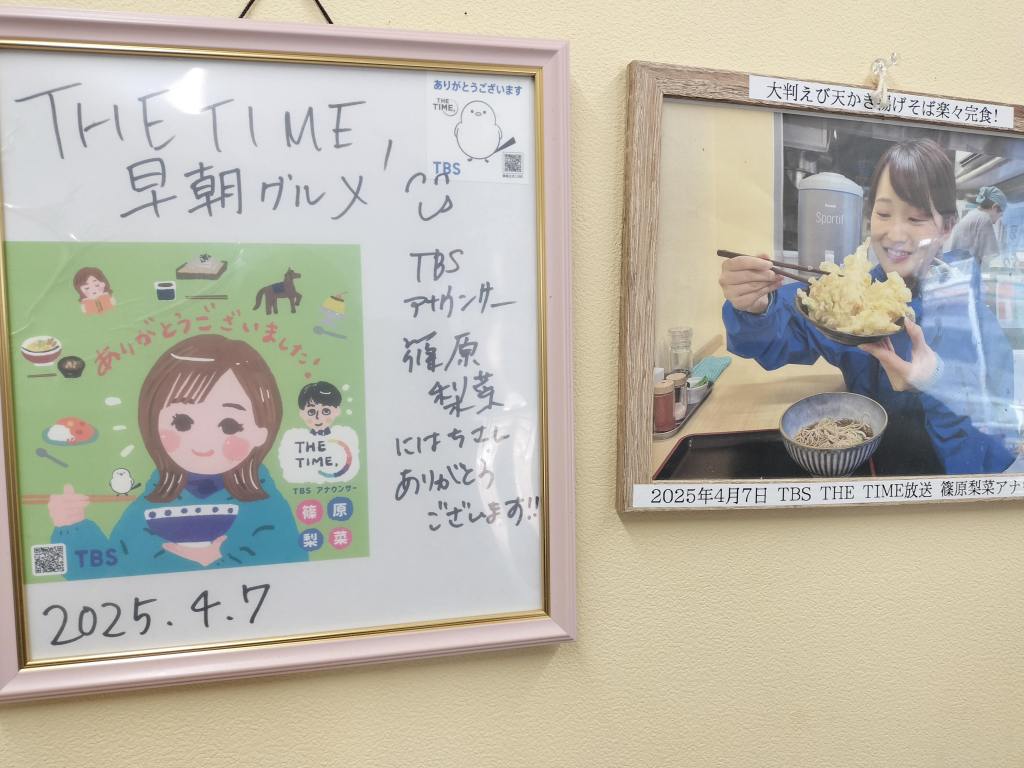 THE TIME,
早朝グルメ
ありがとうございます
THE TIME,
TBS
TBS
アナウンサー
篠原
梨菜
ありがとうございました!
THE
TIME,
TBS アナウンサー
篠 原
梨 菜
TBS
ありがとう
ございます!!
2025.4.7
大判えび天かき揚げそば楽々完食!
Sportif
2025年4月7日 TBS THE TIME放送 篠原梨菜アナ